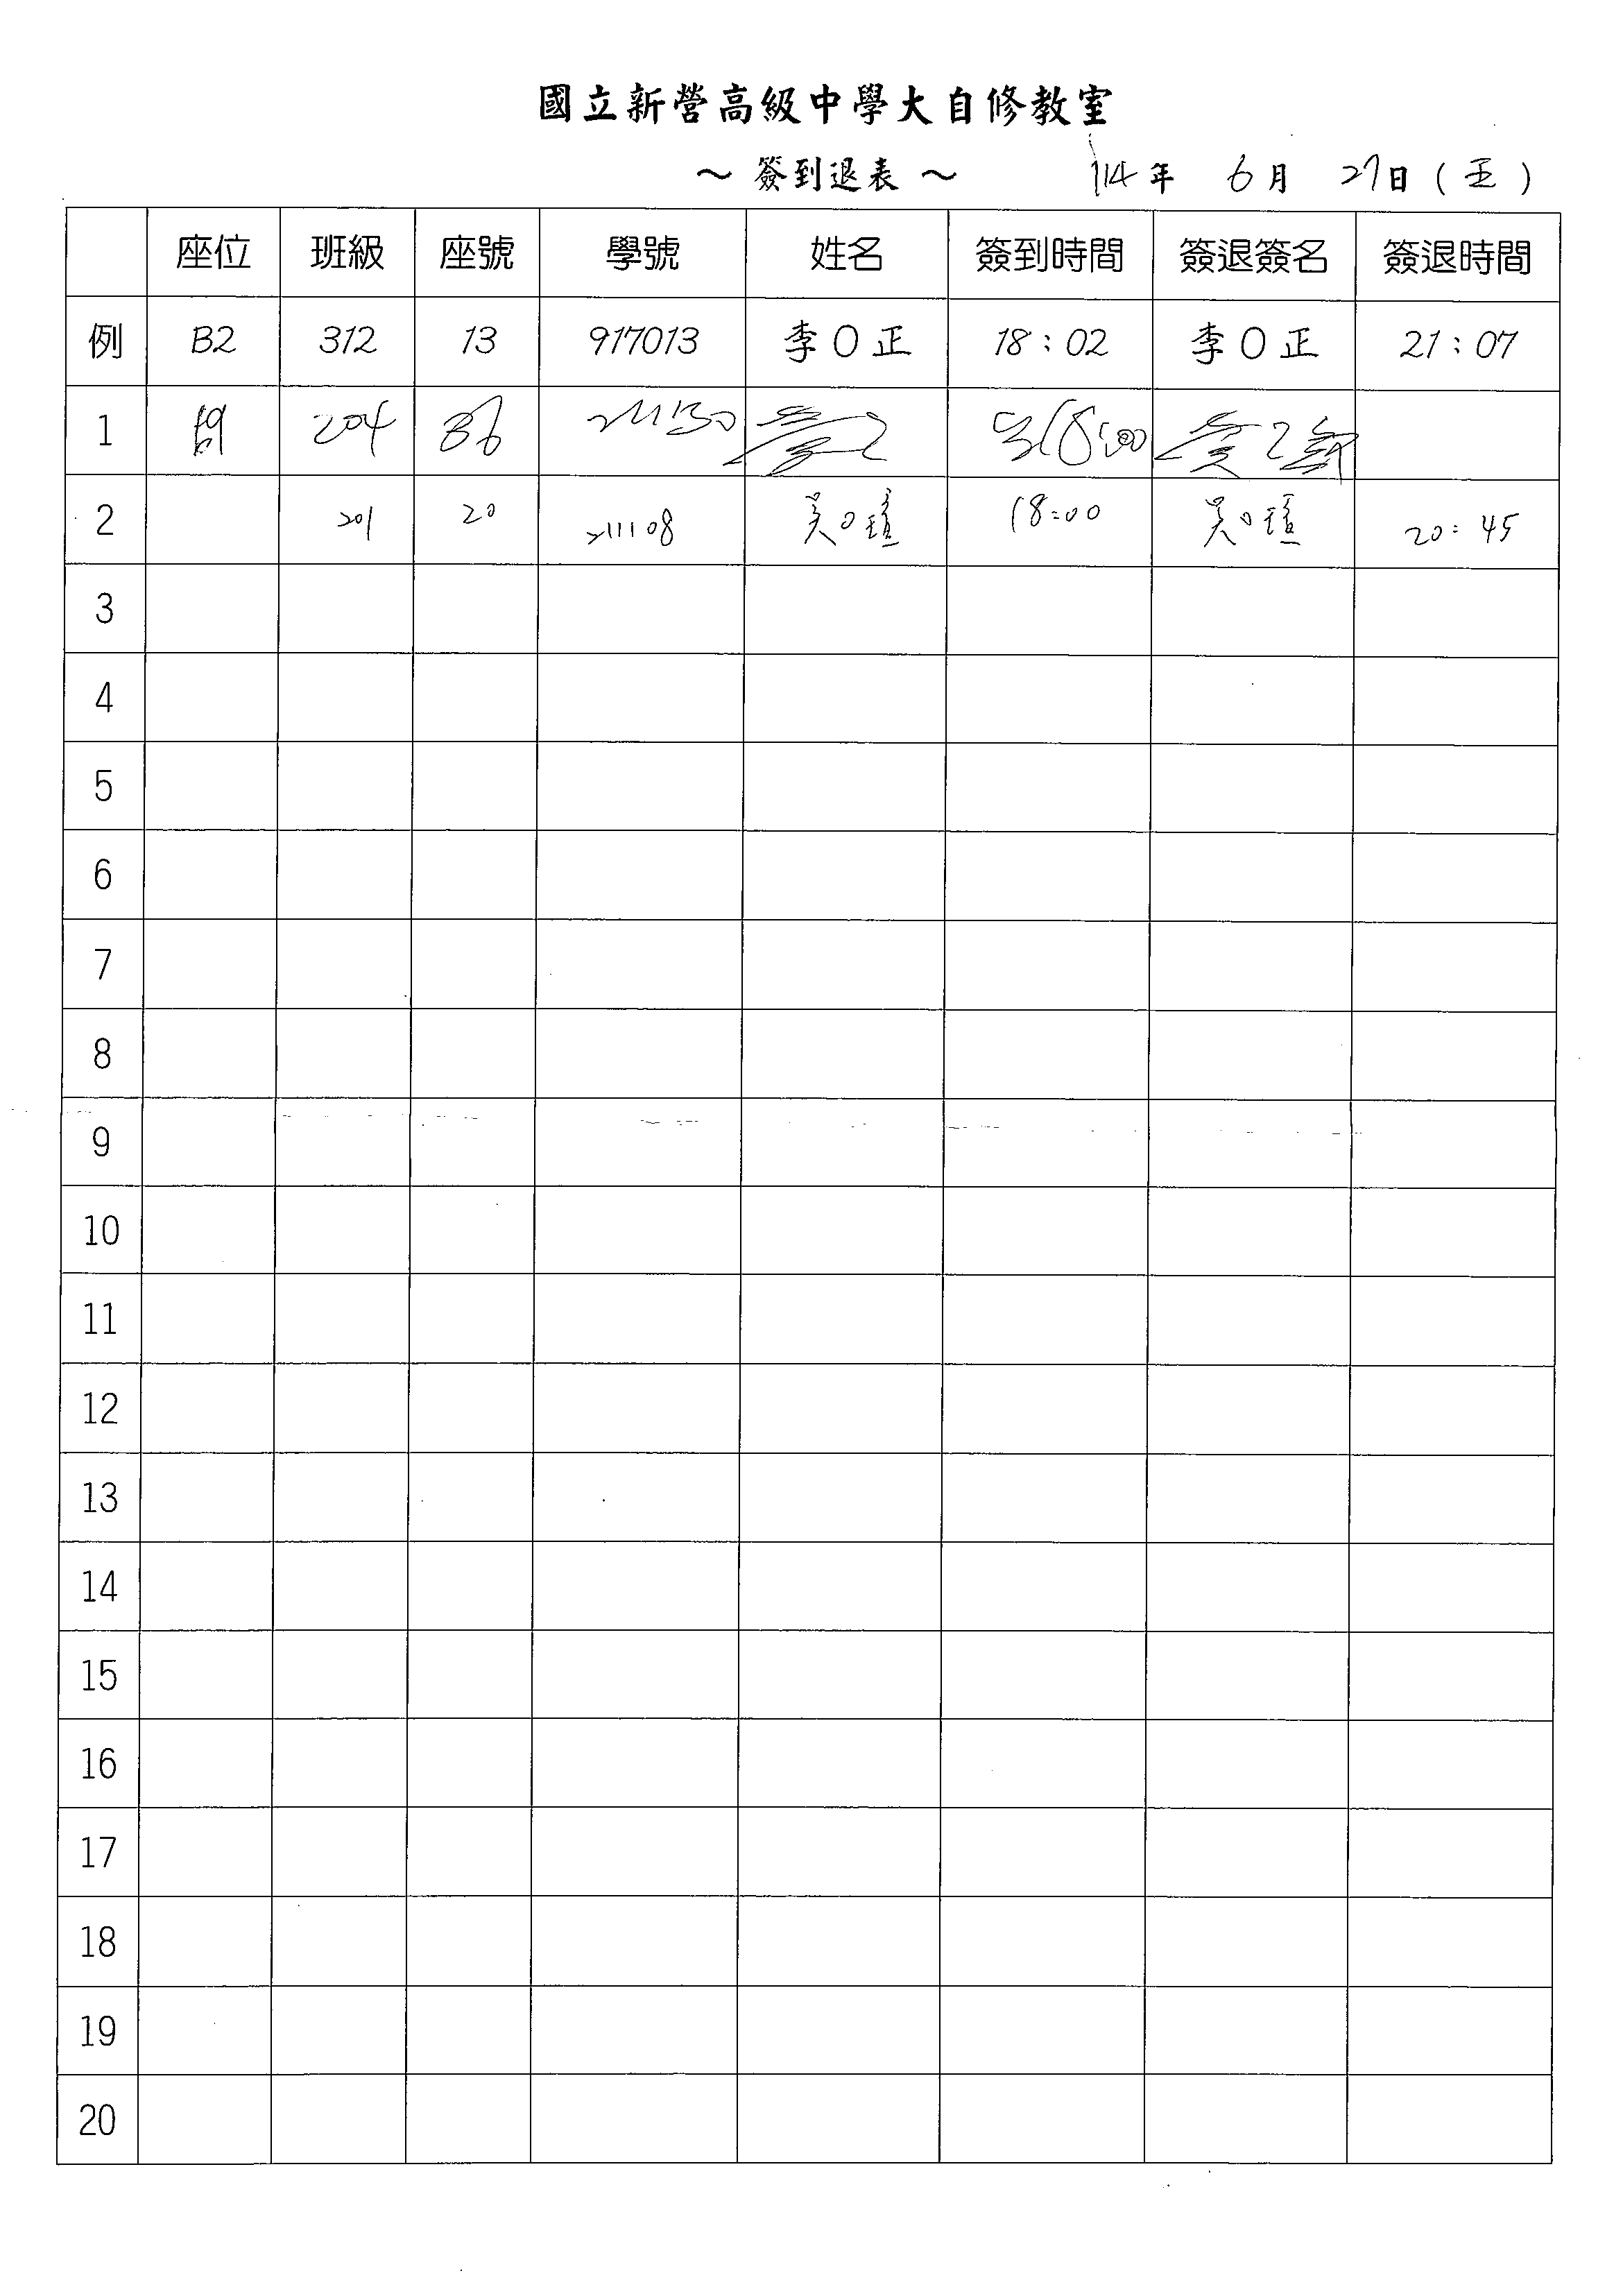 國立新營高級中學大自修教室
～ 簽到退表 ～ 114年 6月 27日（五）
座位 班級 座號 學號 姓名 簽到時間 簽退簽名 簽退時間
例 B2 312 13 917013 李O正 18：02 李O正 21：07
1 204 36
2 201 20 211108 吳O瑄 18:00 吳O瑄 20:45
3
4
5
6
7
8
9
10
11
12
13
14
15
16
17
18
19
20